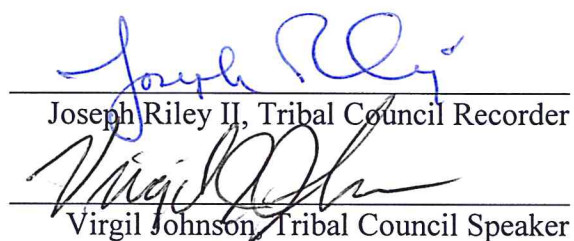 Joseph Riley
Joseph Riley II, Tribal Council Recorder
Virgil Johnson
Virgil Johnson, Tribal Council Speaker